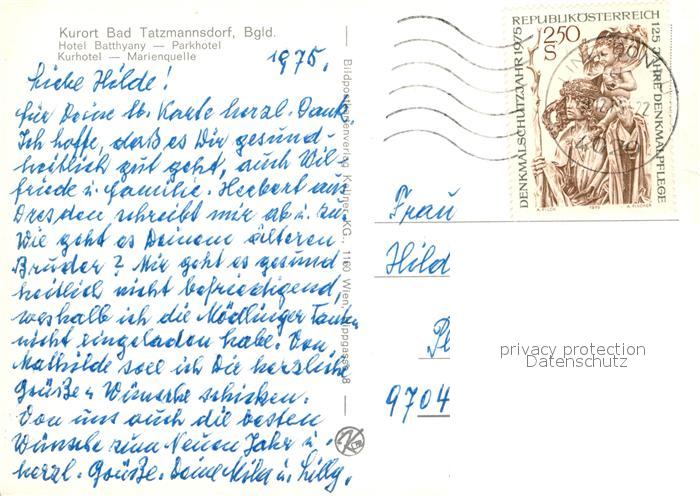 Kurort Bad Tatzmannsdorf, Bgld.
Hotel Batthyany — Parkhotel
Kurhotel — Marienquelle
1975.
Liebe Hilde!
Für Deine lb. Karte herzl. Dank.
Ich hoffe, daß es Dir gesund-
heitlich gut geht, auch Wil-
friede u. Familie. Herbert aus
Dresden schreibt mir ab u. zu.
Wie geht es Deinem älteren
Bruder? Mir geht es gesund
heitlich nicht befriedigend,
weshalb ich die Mödlinger Tanten
nicht eingeladen habe. Von
Mathilde soll ich Die herzliche
Grüße u Wünsche schicken.
Von uns auch die besten
Wünsche zum Neuen Jahr u.
herzl. Grüße. Deine Mila u. Lilly.
Bildpostkartenverlag KG., 1160 Wien, 8
REPUBLIK ÖSTERREICH
2.50
S
DENKMALSCHUTZJAHR 1975
125 JAHRE DENKMALPFLEGE
A. PILCH 1975 A. FISCHER
Frau
Hild
Pl
9704
privacy protection
Datenschutz